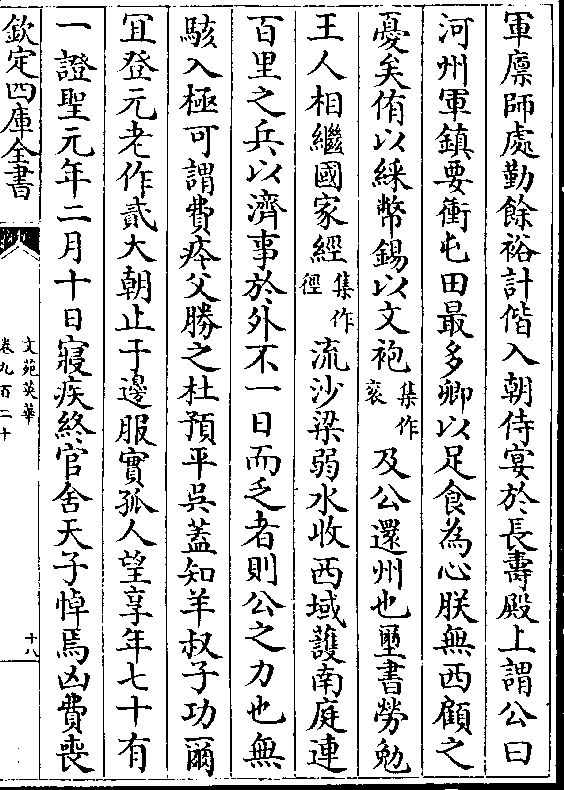 軍廪師處勤餘裕計偕入朝侍宴於長壽殿上謂公曰
河州軍鎮要衝屯田最多卿以足食為心朕無西顧之
憂矣侑以綵幣錫以文袍集作衮及公還州也璽書勞勉
王人相繼國家經集作徑流沙梁弱水收西域護南庭連
百里之兵以濟事於外不一日而乏者則公之力也無
駭入極可謂費庈父勝之杜預平吳蓋知羊叔子功爾
宜登元老作貳大朝止于邊服實孤人望享年七十有
一證聖元年二月十日寢疾終官舍天子悼焉凶費喪
欽定四庫全書
文苑英華
卷九百二十
十八